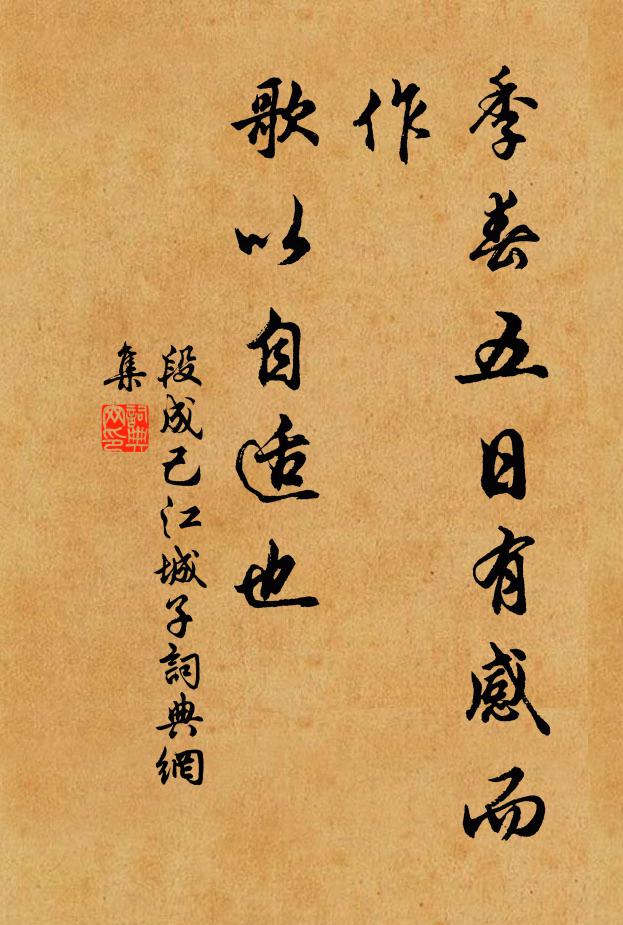 季春五日有感而
作
歌以自适也
段成己江城子詞典網
集
詞典